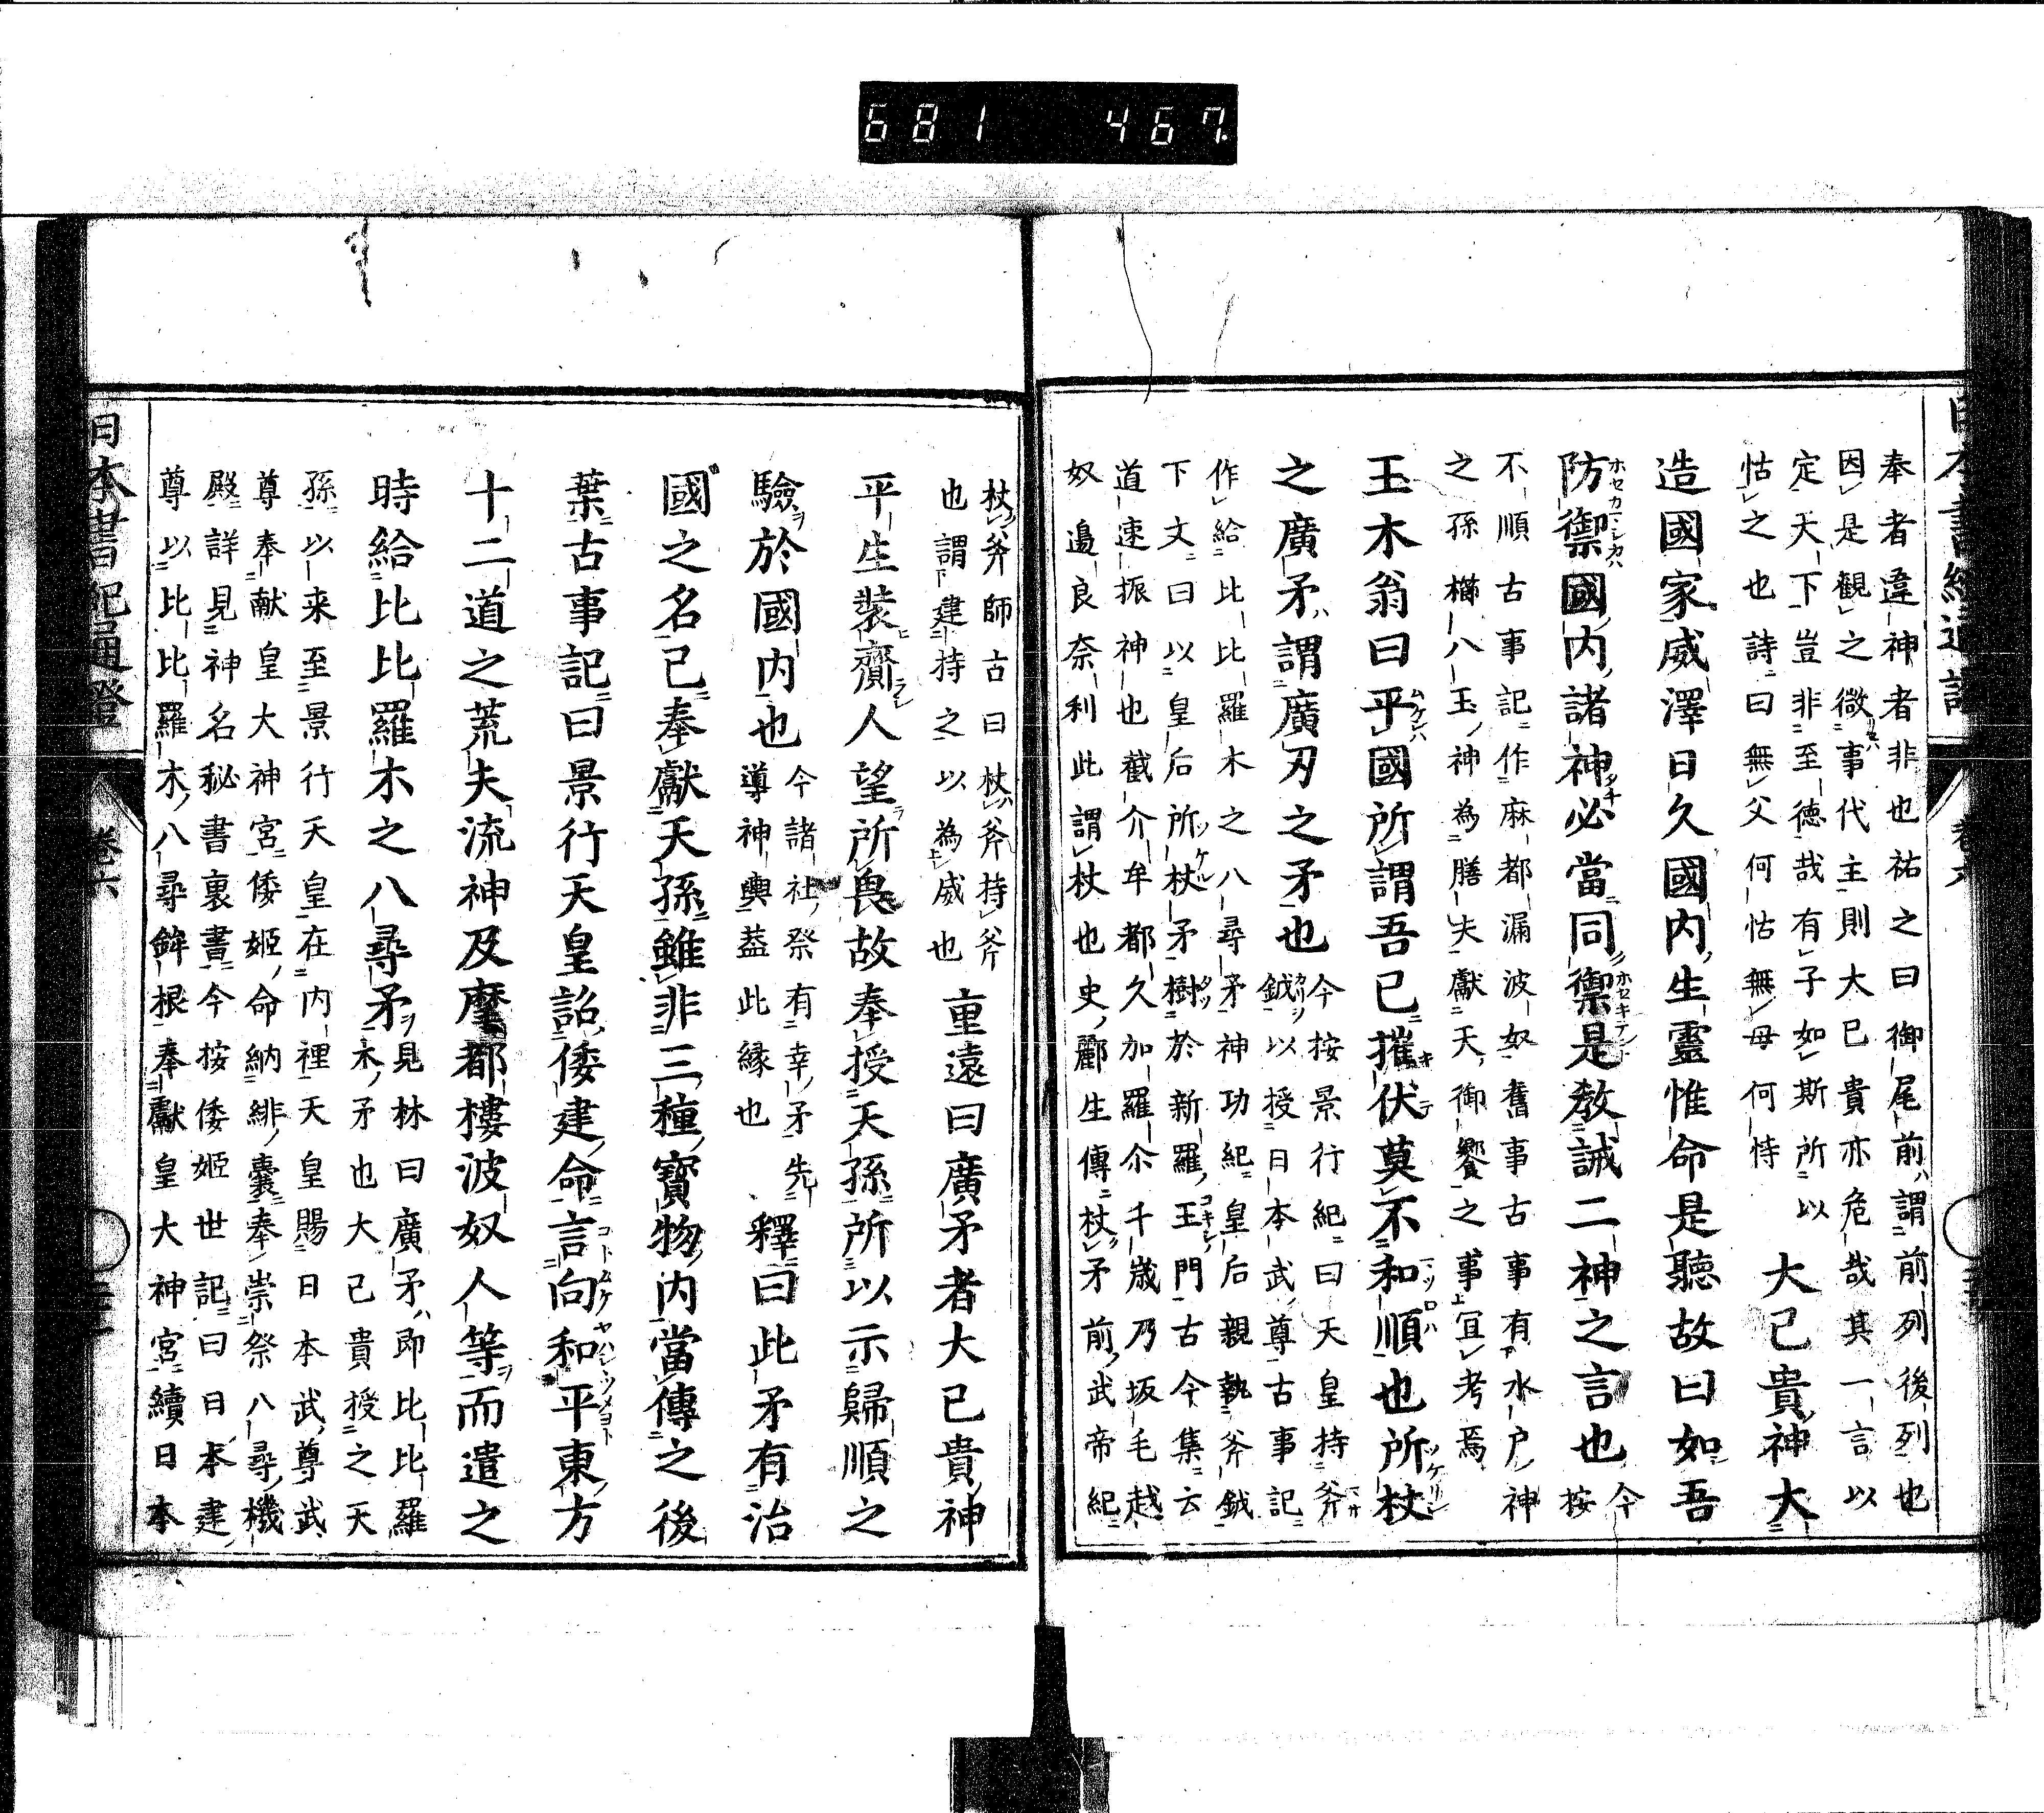 681 467
奉者違神者非也祐之曰御尾前謂前列後列也
因是觀之微事代主則大已貴亦危哉其一言以
定天下豈非至德哉有子如斯所以
怙之也詩曰無父何怙無母何恃
大已貴神大
造國家威澤日久國內生靈惟命是聽故曰如吾
防禦國內諸神必當同禦是教誡二神之言也今
按
不順古事記作麻都漏波奴舊事古事有水戶神
之孫櫛八玉神為膳夫獻天御饗之事冝考焉
玉木翁曰平國所謂吾已摧伏莫不和順也所杖
之廣矛謂廣刃之矛也
今按景行紀曰天皇持斧
鉞以授日本武尊古事記
作給比比羅木之八尋矛神功紀皇后親執斧鉞
下文曰以皇后所杖矛樹於新羅王門古今集云
道速振神也截介牟都久加羅尒千歲乃坂毛越
奴邊良奈利此謂杖也史酈生傳杖矛前武帝紀
杖斧師古曰杖斧持斧
也謂建持之以為威也
重遠曰廣矛者大已貴神
平生裝齎人望所畏故奉授天孫所以示歸順之
驗於國內也
今諸社祭有幸矛先
導神輿葢此緣也
釋曰此矛有治
國之名已奉獻天孫雖非三種寶物內當傳之後
葉古事記曰景行天皇詔倭建命言向和平東方
十二道之荒夫流神及摩都樓波奴人等而遣之
時給比比羅木之八尋矛
見林曰廣矛即比比羅
木矛也大己貴授之天
孫以來至景行天皇在內裡天皇賜日本武尊武
尊奉献皇大神宮倭姬命納緋囊奉崇祭八尋機
殿詳見神名秘書裏書今按倭姬世記曰日本建
尊以比比羅木八尋鉾根奉獻皇大神宮續日本
日本書紀通證
卷六